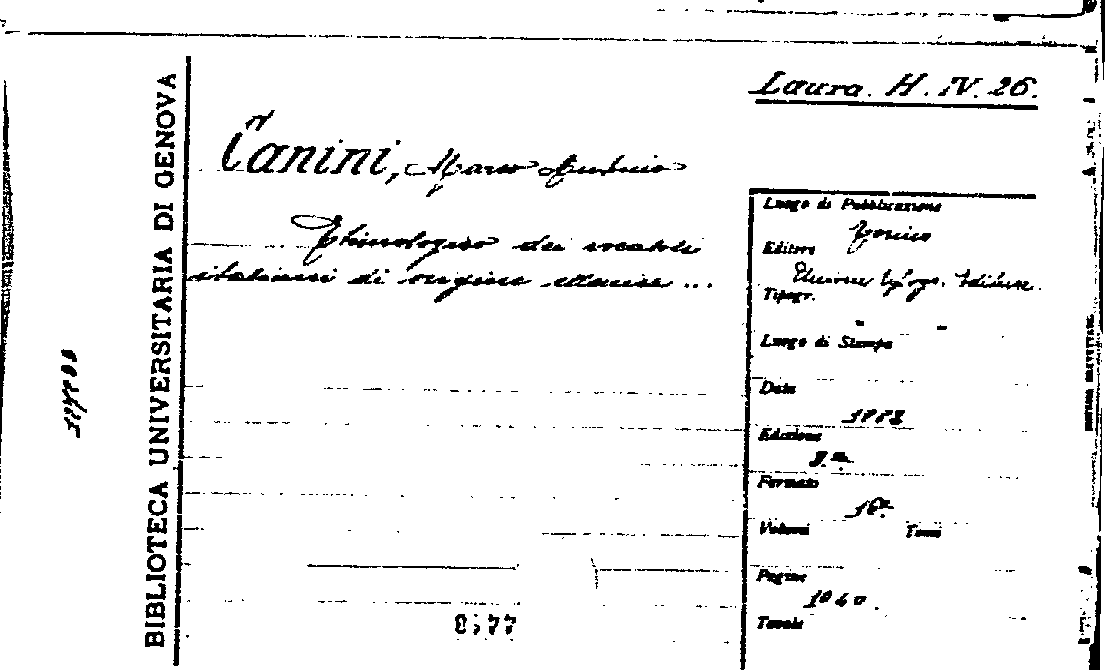 Laura. H. IV. 26.
BIBLIOTECA UNIVERSITARIA DI GENOVA
Canini, Marco Antonio
Etimologico dei vocaboli
italiani di origine ellenica ...
Luogo di Pubblicazione
Torino
Editore
Unione tipogr. Editrice.
Tipogr.
Luogo di Stampa
Data
Edizione
Formato
16º
Volumi Tomi
Pagine
Tavole